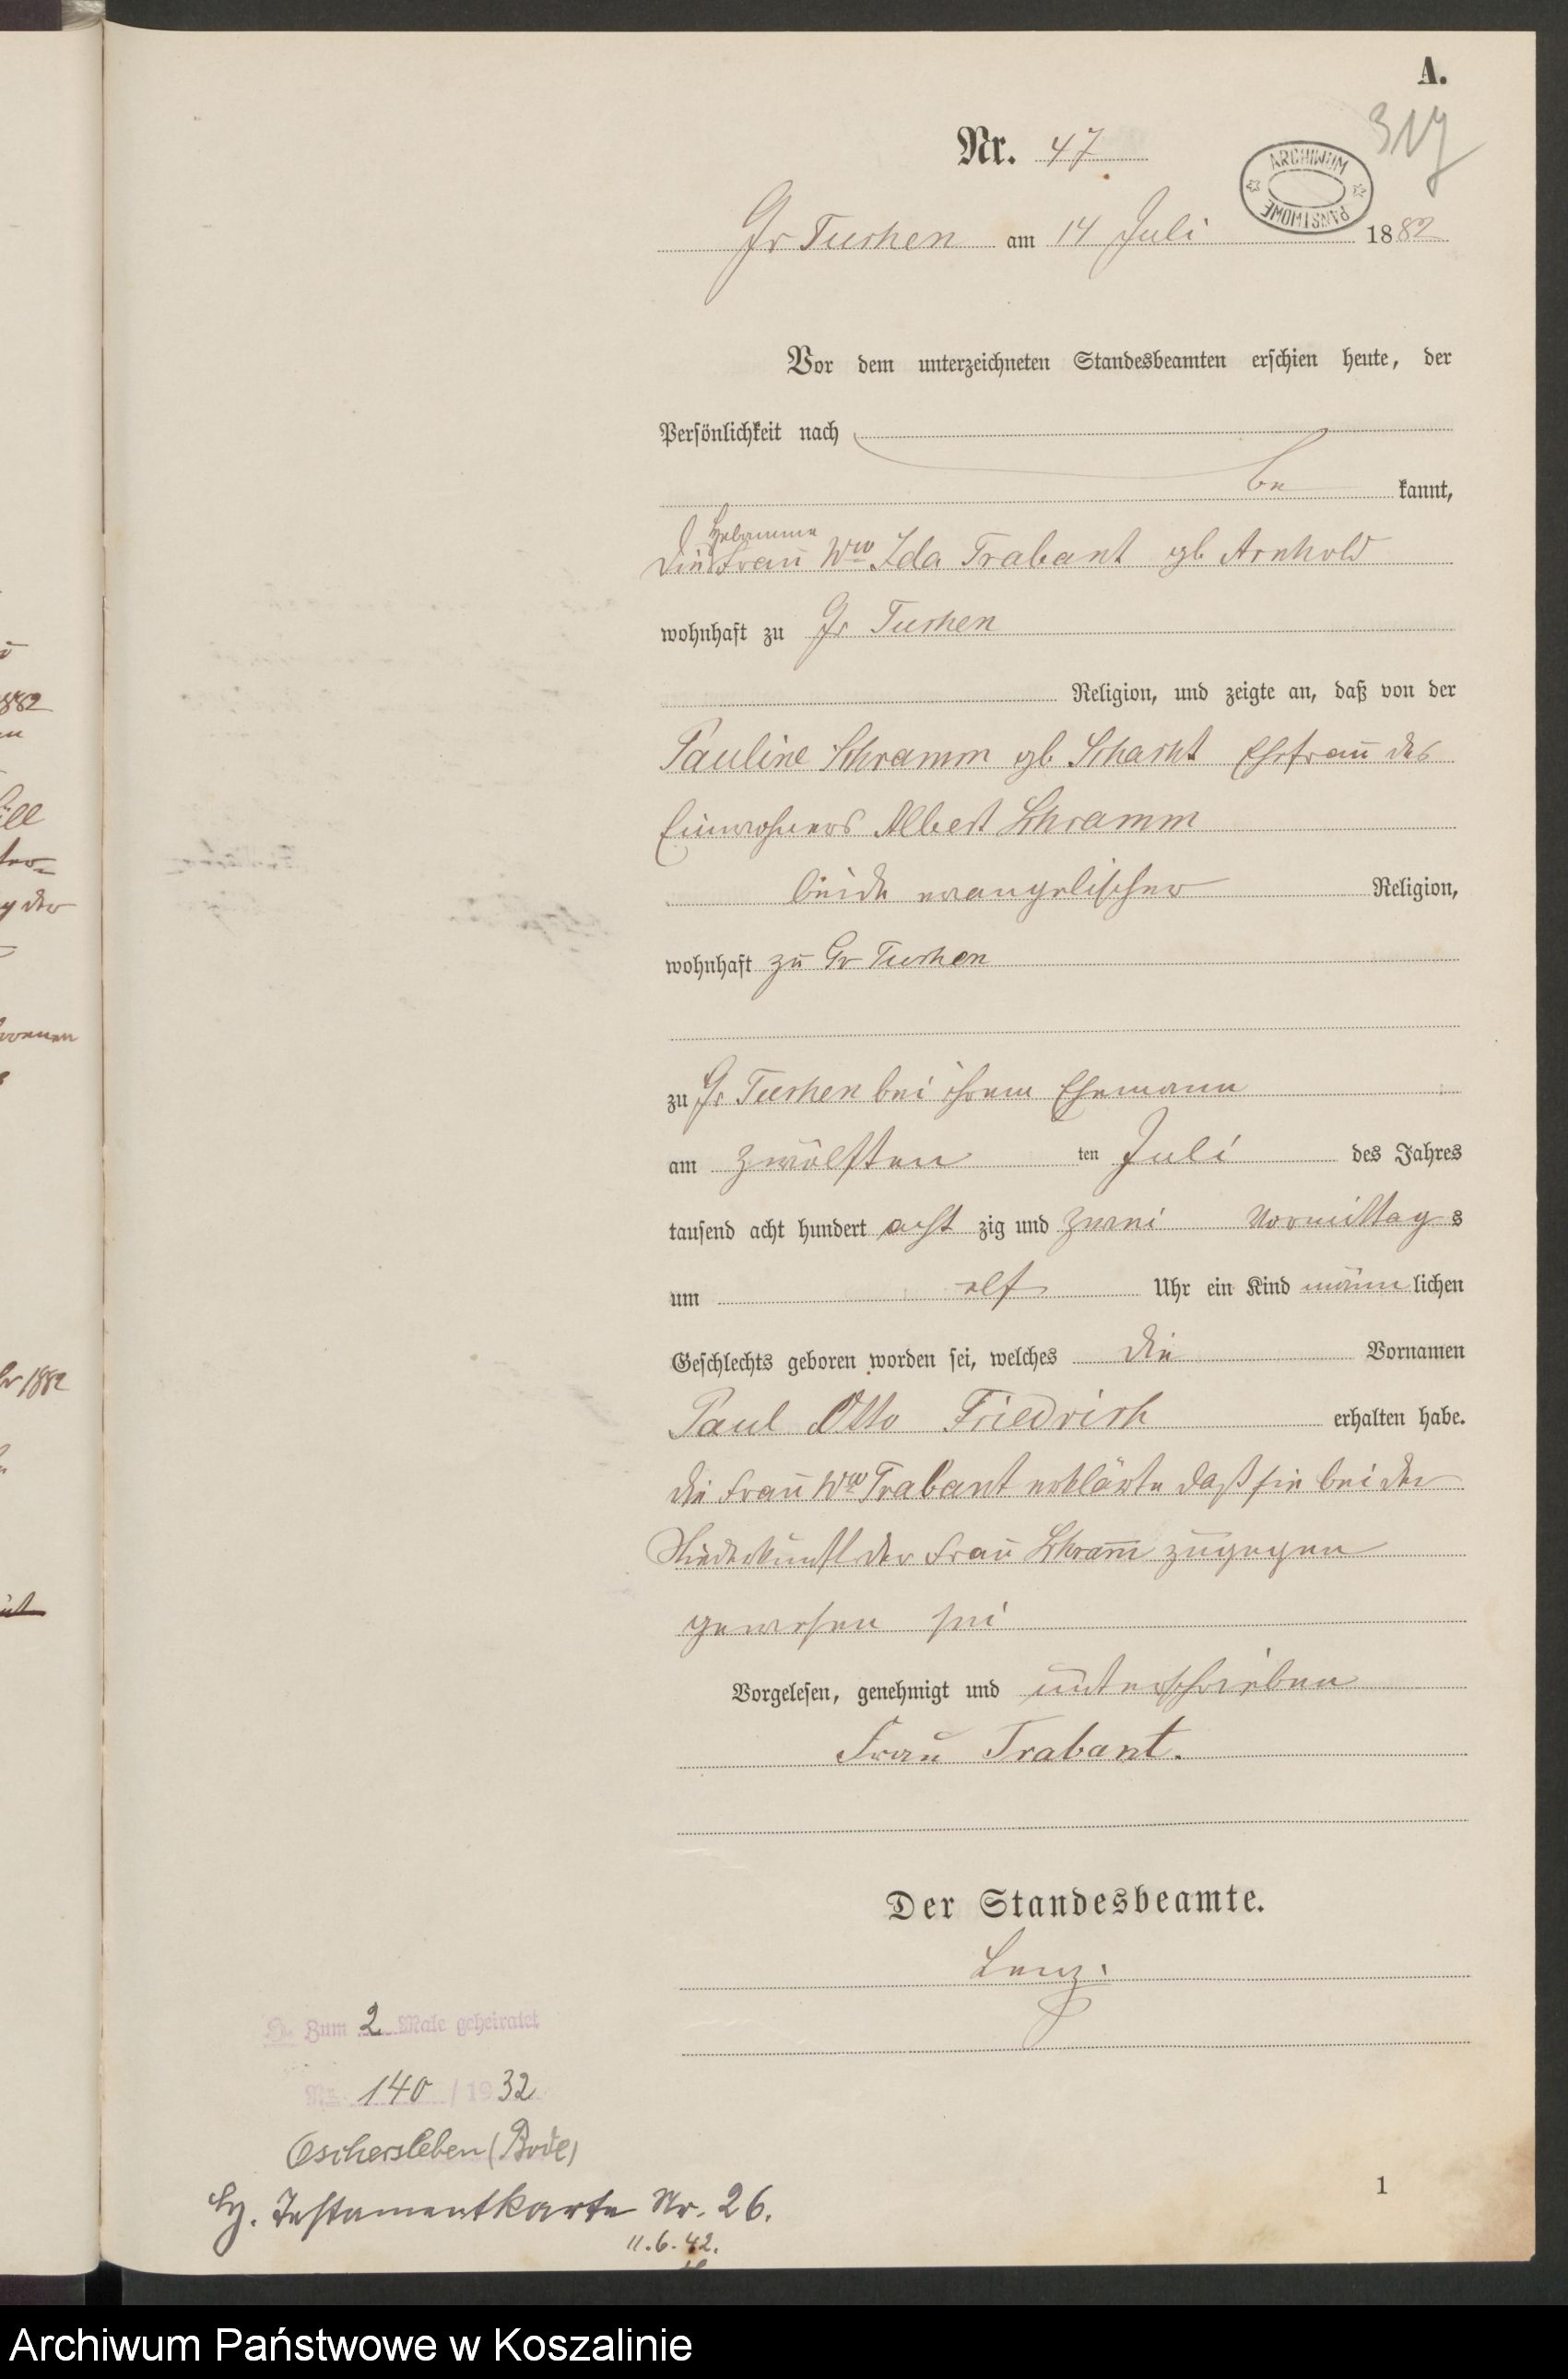 A.
317
Nr. 47
ARCHIWUM PAŃSTWOWE
Gr Tuchen am 14 Juli 1882
Vor dem unterzeichneten Standesbeamten erschien heute, der
Persönlichkeit nach
be kannt,
Hebamme
die Frau Ww Ida Trabant gb Arnhold
wohnhaft zu Gr Tuchen
Religion, und zeigte an, daß von der
Pauline Schramm gb Schacht Ehefrau des
Einwohners Albert Schramm
beide evangelischer Religion,
wohnhaft zu Gr Tuchen
zu Gr Tuchen bei ihrem Ehemann
am zwölften ten Juli des Jahres
tausend acht hundert acht zig und zwei Vormittag s
um elf Uhr ein Kind männ lichen
Geschlechts geboren worden sei, welches die Vornamen
Paul Otto Friedrich erhalten habe.
die Frau Ww Trabant erklärte daß sie bei der
Niederkunft der Frau Schram̅ zugegen
gewesen sei
Vorgelesen, genehmigt und unterschrieben
Frau Trabant.
Der Standesbeamte.
Lenz.
Zum 2 Male geheiratet
Nr. 140 / 1932
Oschersleben (Bode)
Testamentkarte Nr. 26.
11.6.42.
1
882
der
1882
Archiwum Państwowe w Koszalinie